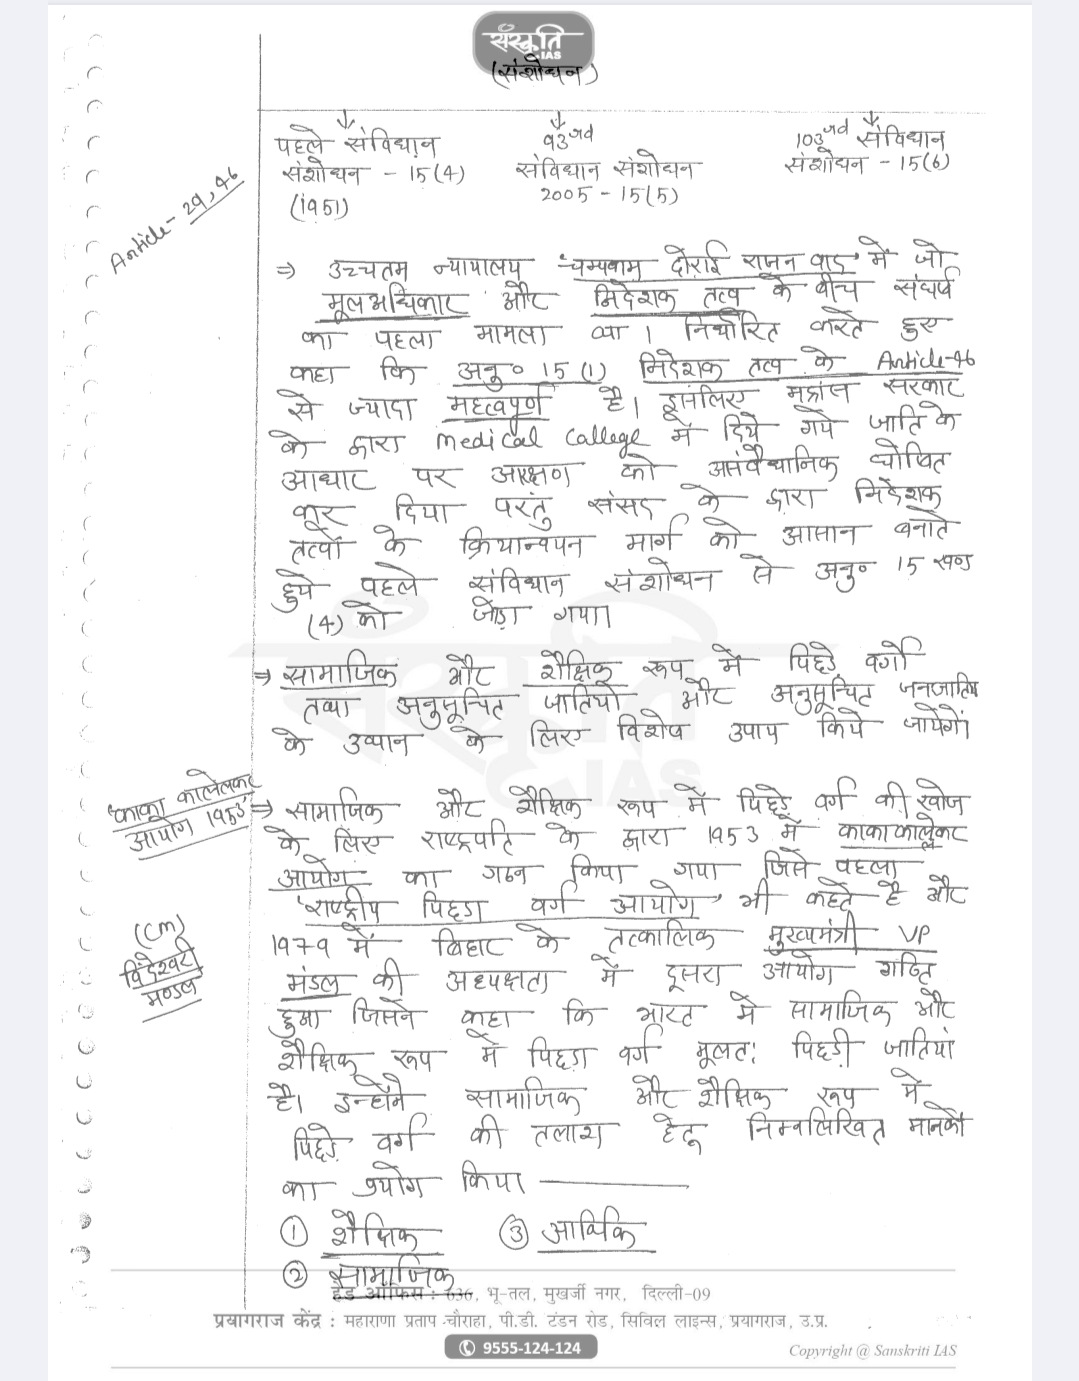 संस्कृति
IAS
(संशोधन)
पहले संविधान
संशोधन - 15(4)
(1951)
93जवं
संविधान संशोधन
2005 - 15(5)
103जवं संविधान
संशोधन - 15(6)
Article - 29, 46
⇒ उच्चतम न्यायालय 'चम्पकम दोराई राजन वाद' में जो
मूलअधिकार और निदेशक तत्व के बीच संघर्ष
का पहला मामला था। निर्धारित करते हुए
कहा कि अनु० 15(1) निदेशक तत्व के Article-46
से ज्यादा महत्वपूर्ण है। इसलिए मद्रास सरकार
के द्वारा medical Callege में दिये गये जाति के
आधार पर आरक्षण को असंवैधानिक घोषित
कर दिया परंतु संसद के द्वारा निदेशक
तत्वों के क्रियान्वयन मार्ग को आसान बनाते
हुये पहले संविधान संशोधन से अनु० 15 खण्ड
(4) को जोड़ा गया।
⇒ सामाजिक और शैक्षिक रूप में पिछड़े वर्गों
तथा अनुसूचित जातियों और अनुसूचित जनजातिय
के उत्थान के लिए विशेष उपाय किये जायेगें।
'काका कालेलकर
आयोग 1953'
⇒ सामाजिक और शैक्षिक रूप में पिछड़े वर्ग की खोज
के लिए राष्ट्रपति के द्वारा 1953 में काका कालेलकर
आयोग का गठन किया गया जिसे पहला
'राष्ट्रीय पिछड़ा वर्ग आयोग' भी कहते है और
1979 में बिहार के तत्कालिक मुख्यमंत्री VP
मंडल की अध्यक्षता में दूसरा आयोग गठित
हुआ जिसने कहा कि भारत में सामाजिक और
शैक्षिक रूप में पिछड़ा वर्ग मूलत: पिछड़ी जातियां
है। इन्होंने सामाजिक और शैक्षिक रूप में
पिछड़े वर्ग की तलाश हेतू निम्नलिखित मानकों
का प्रयोग किया
(CM)
विंदेश्वरी
मण्डल
① शैक्षिक ③ आर्थिक
② सामाजिक
हेड ऑफिस : 636, भू-तल, मुखर्जी नगर, दिल्ली-09
प्रयागराज केंद्र : महाराणा प्रताप चौराहा, पी.डी. टंडन रोड, सिविल लाइन्स, प्रयागराज, उ.प्र.
9555-124-124
Copyright @ Sanskriti IAS